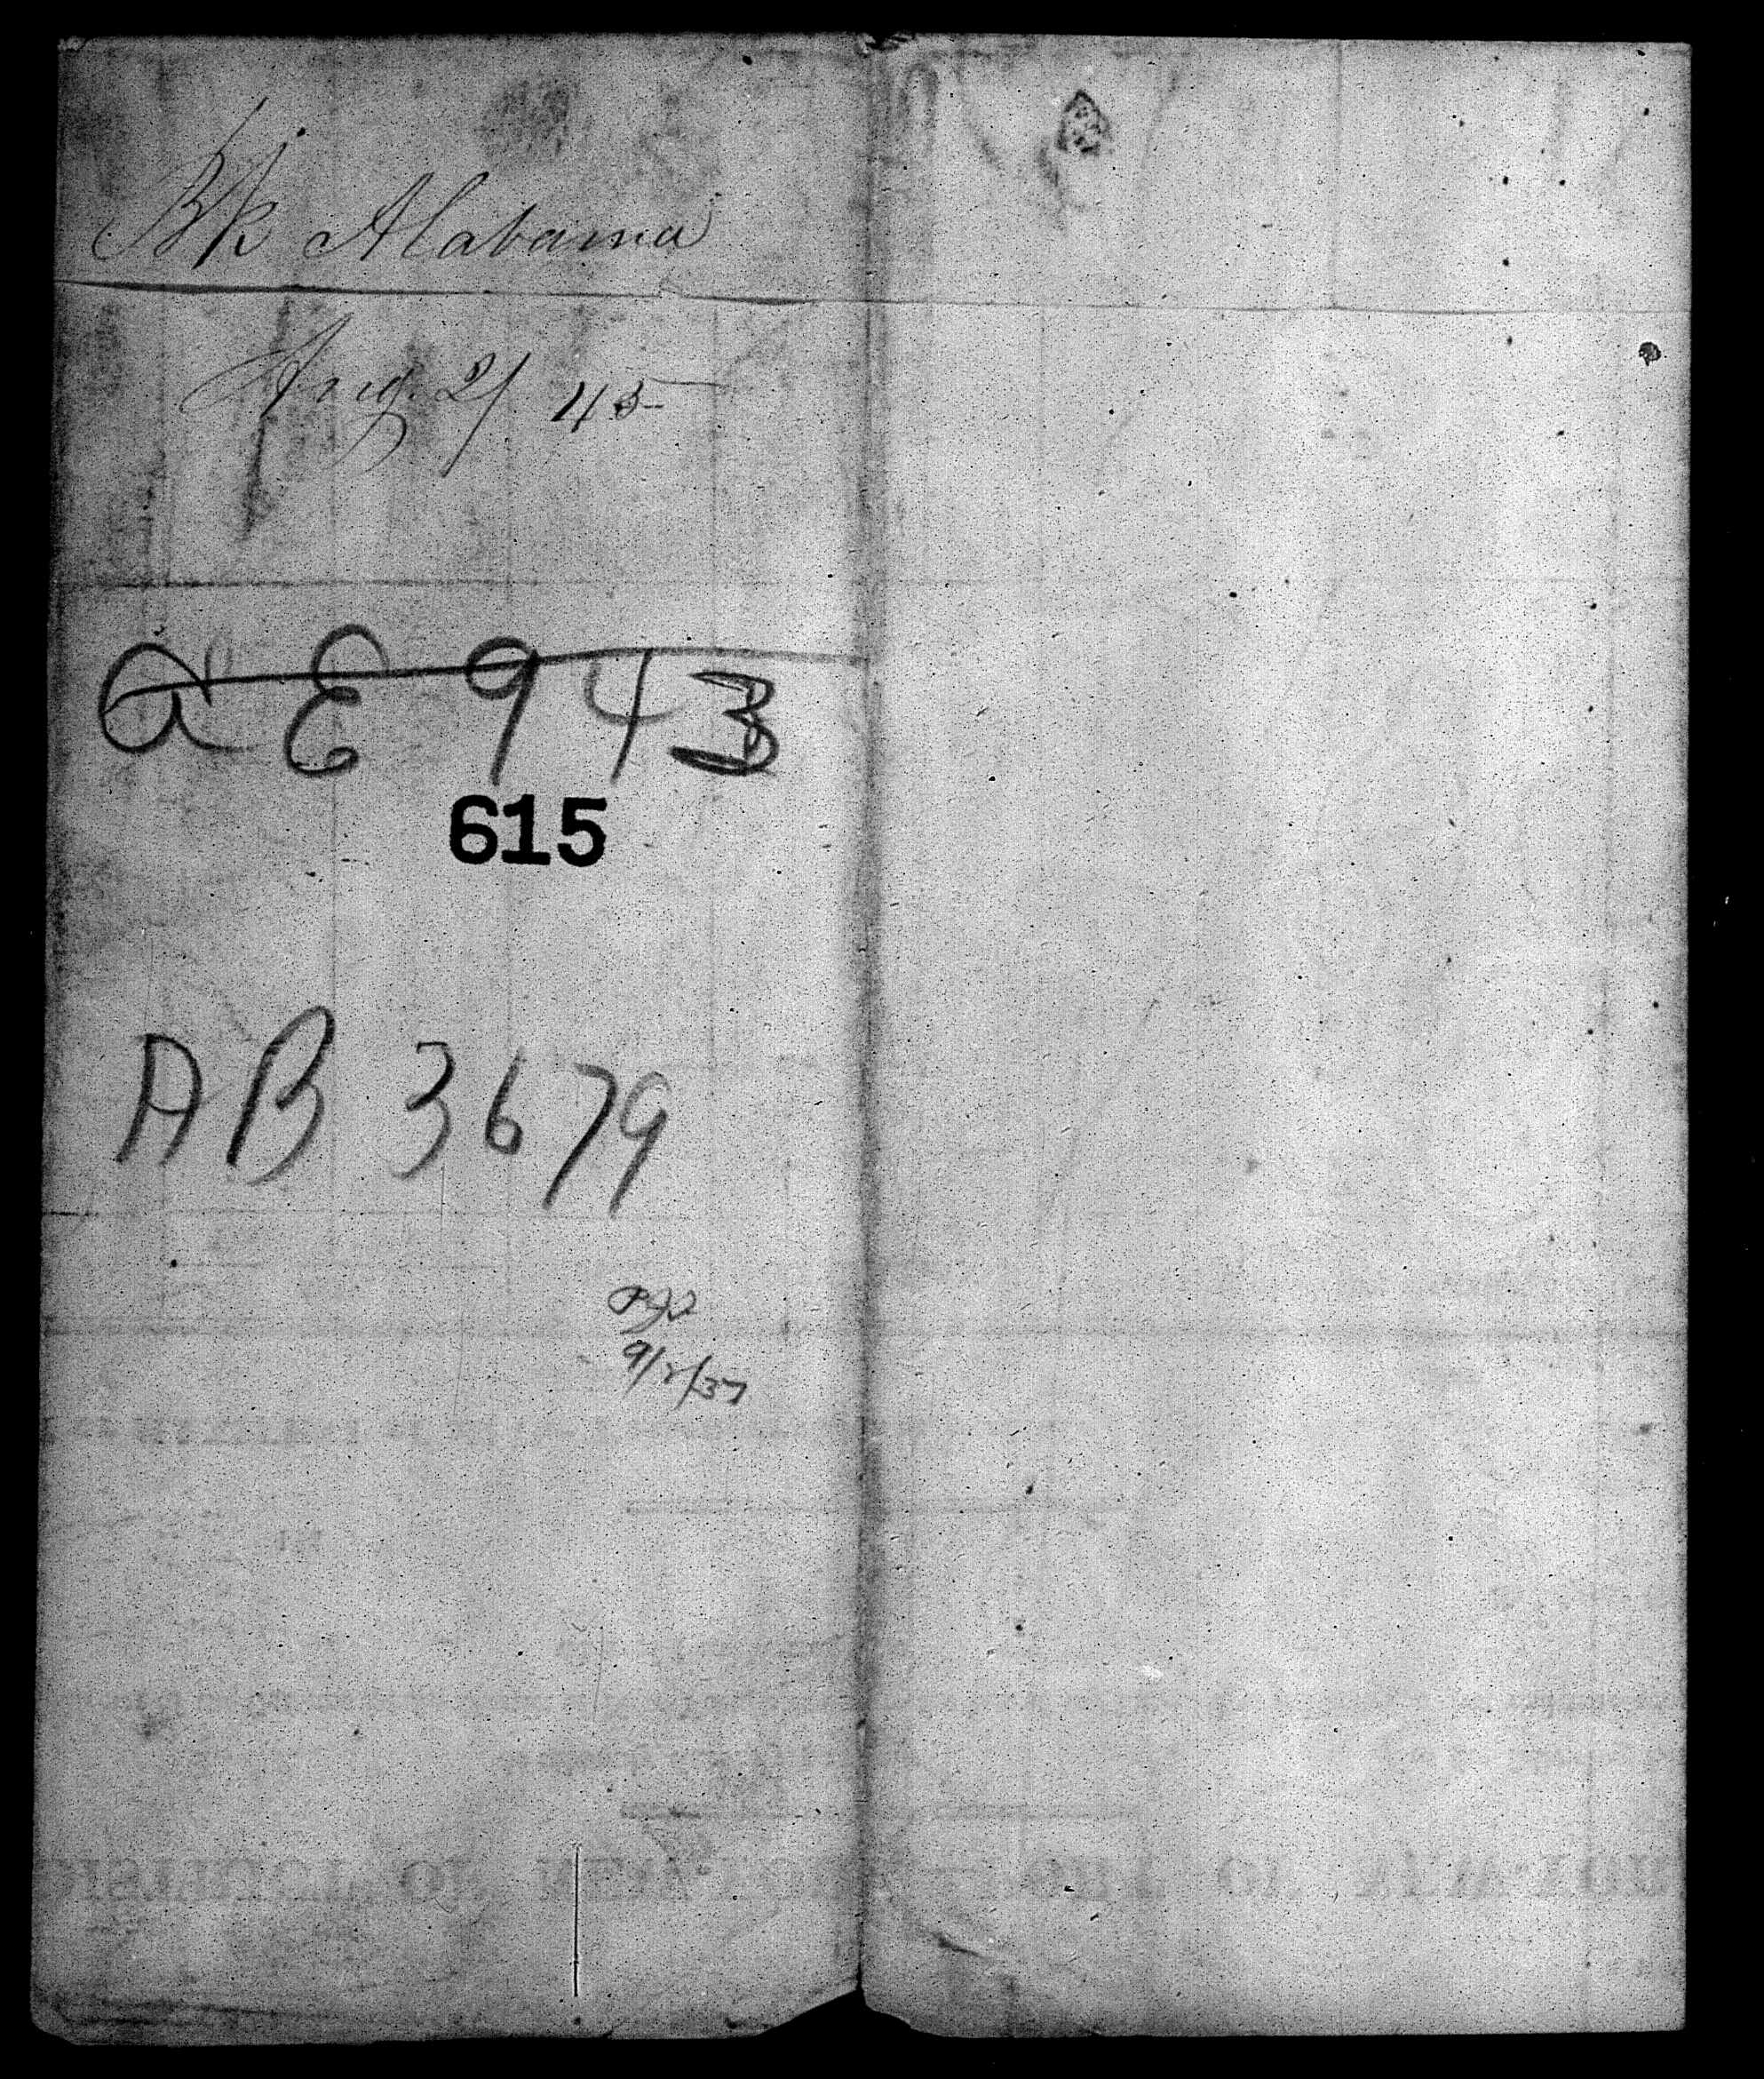 Bk Alabama
Aug. 2/ 45
A E 943
615
AB 3679
9/2/37